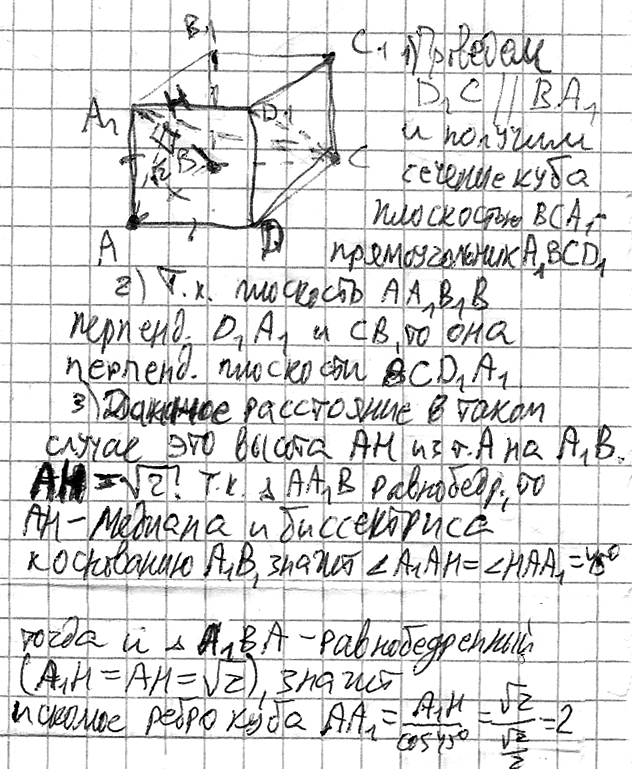 B₁
C₁
A₁
H
D₁
√2
B
C
x
A
D
1) Проведем
D₁C || BA₁
и получим
сечение куба
плоскостью BCA₁ -
прямоугольник A₁BCD₁
2) Т.к. плоскость AA₁B₁B
перпенд. D₁A₁ и CB, то она
перпенд. плоскости BCD₁A₁
3) Данное расстояние в таком
случае это высота AH из т. A на A₁B.
AH = √2! Т.к. Δ AA₁B равнобедр., то
AH - медиана и биссектриса
к основанию A₁B, значит ∠A₁AH = ∠HAA₁ = 45°
тогда и Δ A₁BA - равнобедренный
(A₁H = AH = √2), значит
искомое ребро куба AA₁ = A₁H / cos 45° = √2 / (√2 / 2) = 2